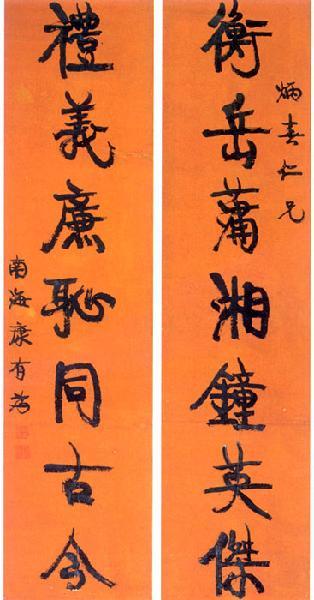 炳春仁兄
衡岳萧湘鐘英傑
禮義廉恥同古今
南海康有為